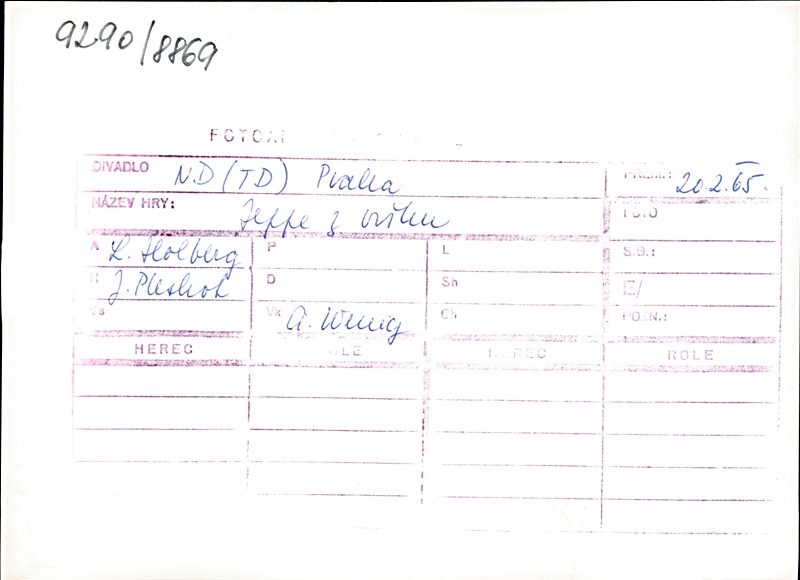 9290/8869
DIVADLO N.D (TD) Praha PREM.: 20.2.65.
NÁZEV HRY: Jeppe z vršku
A L. Holberg P L S.G.:
R J. Pleskot D Sh E/
Vk A. Wenig Ch POZN.:
HEREC HEREC ROLE